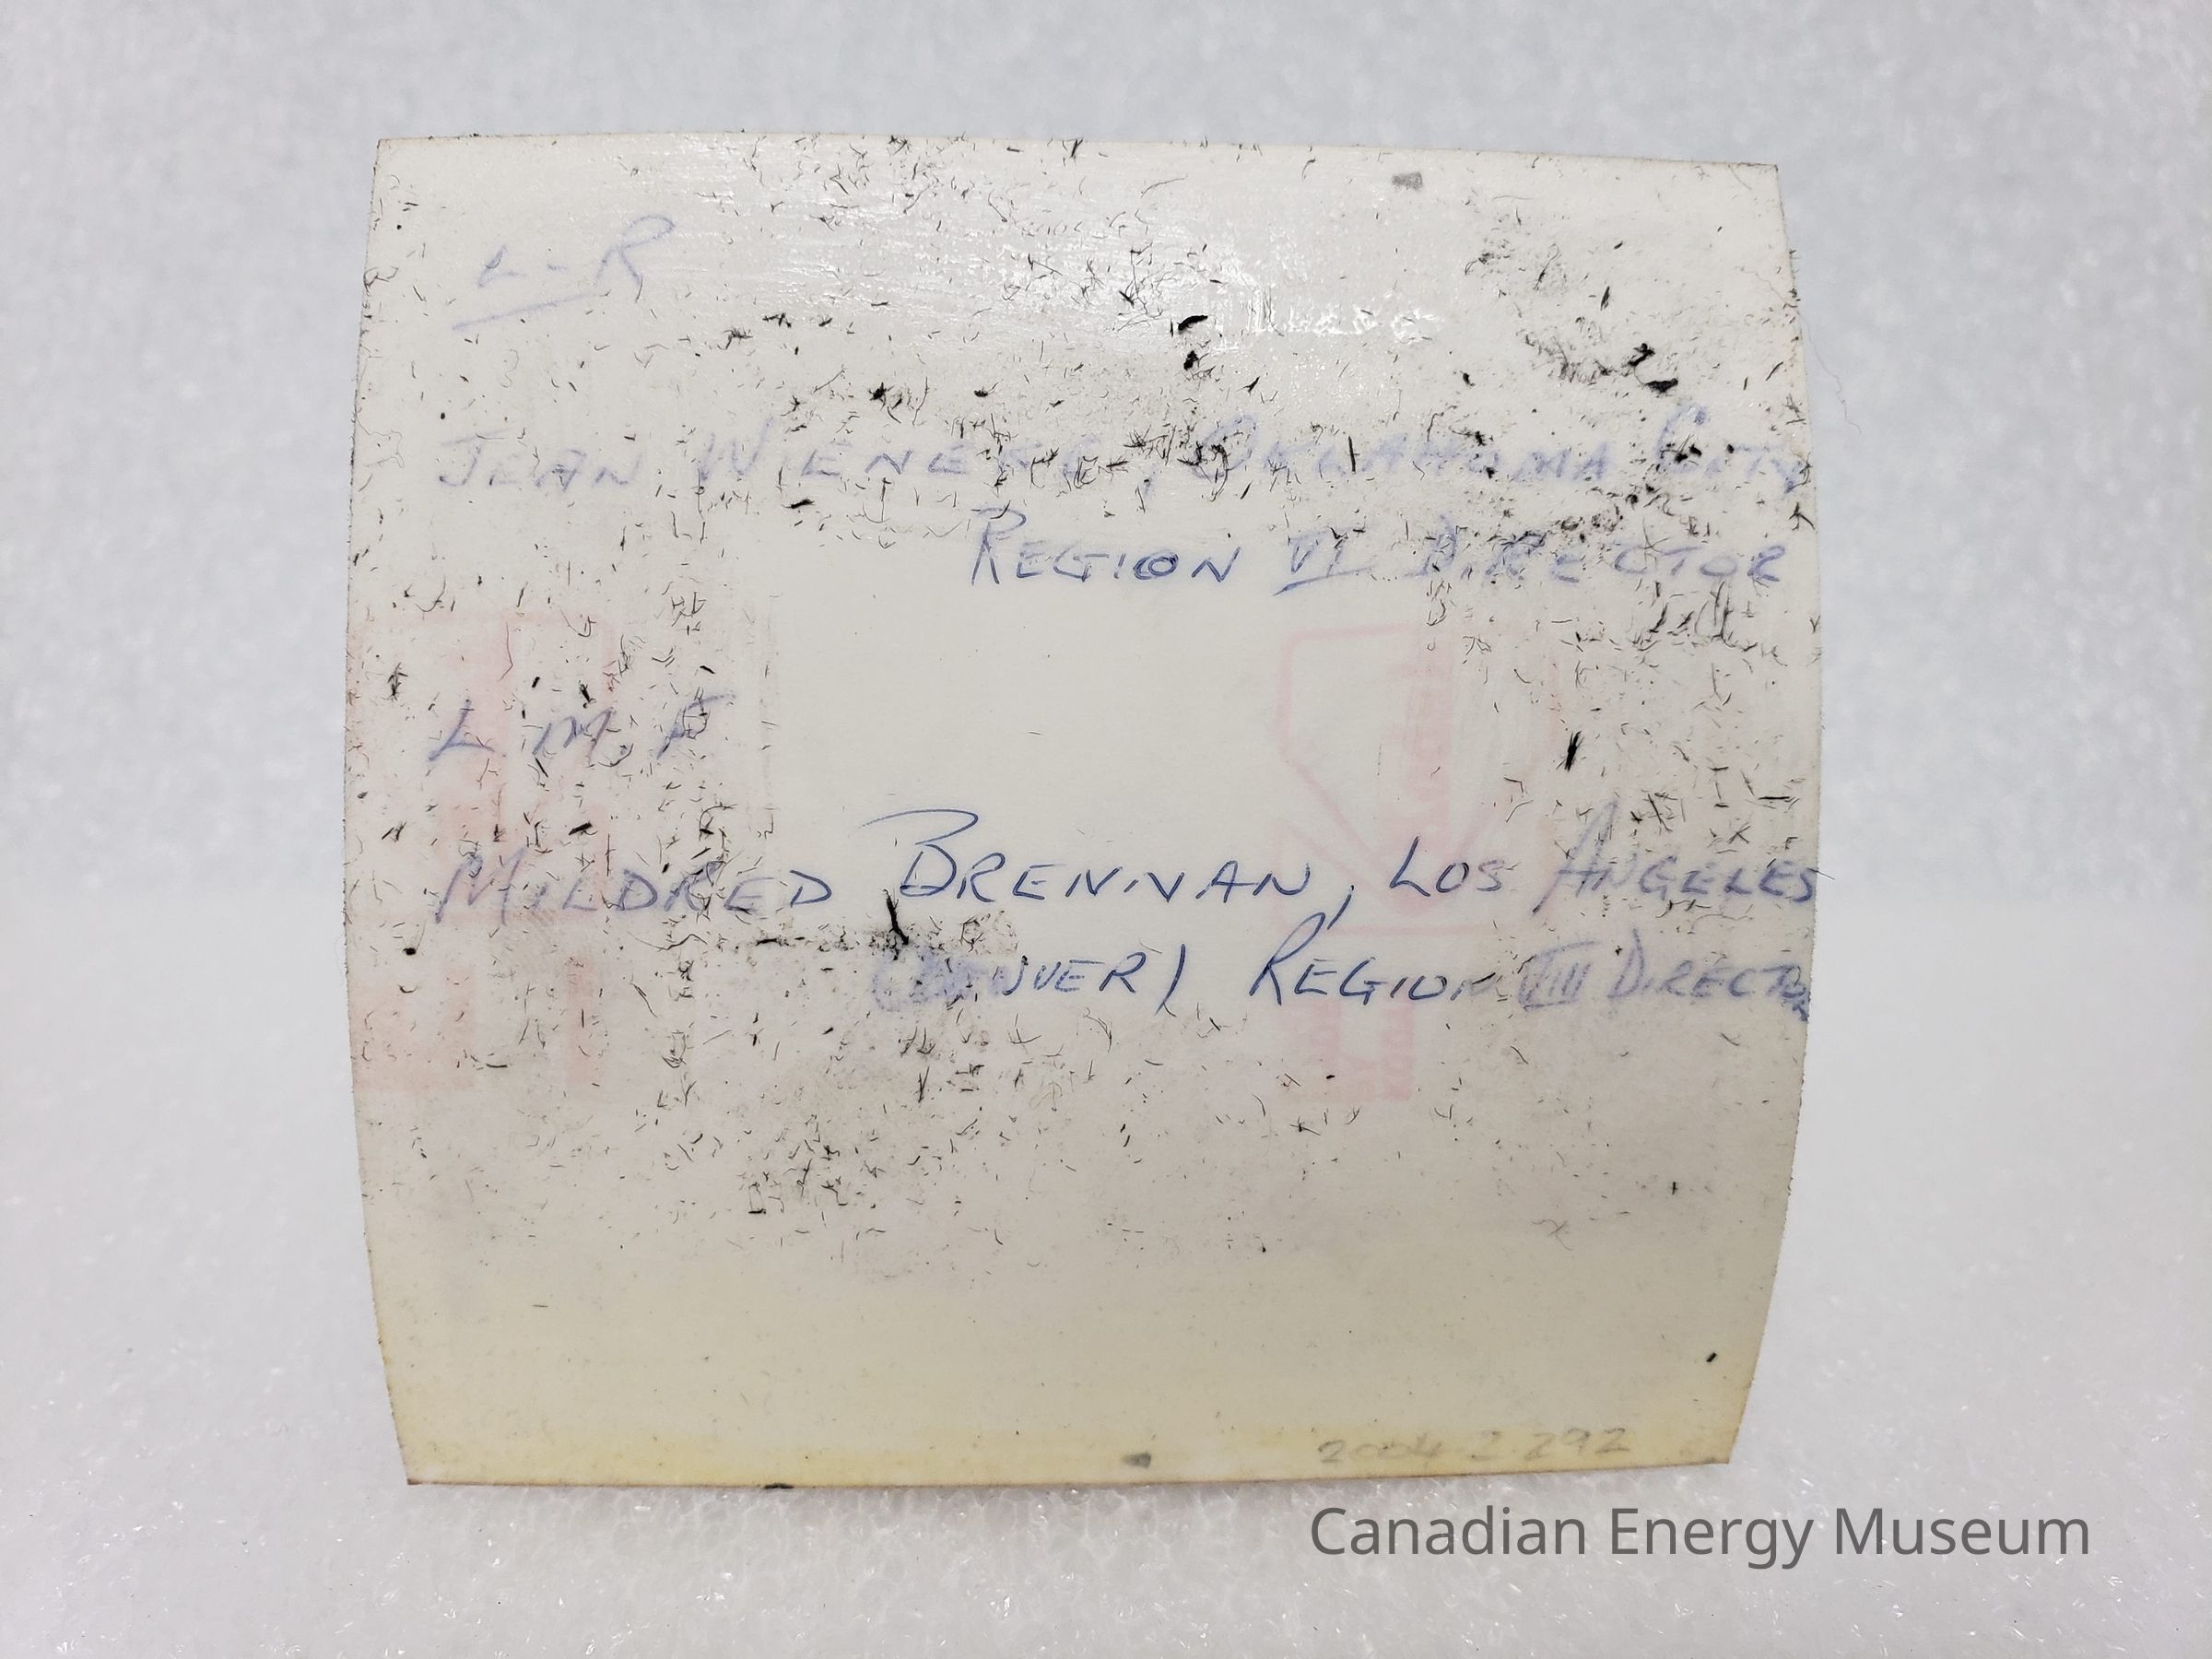 L-R
JEAN , OKLAHOMA CITY
REGION VI DIRECTOR
L. M. F
MILDRED BRENNAN, LOS ANGELES
(DENVER) REGION VIII DIRECTOR
2004.2.292
Canadian Energy Museum